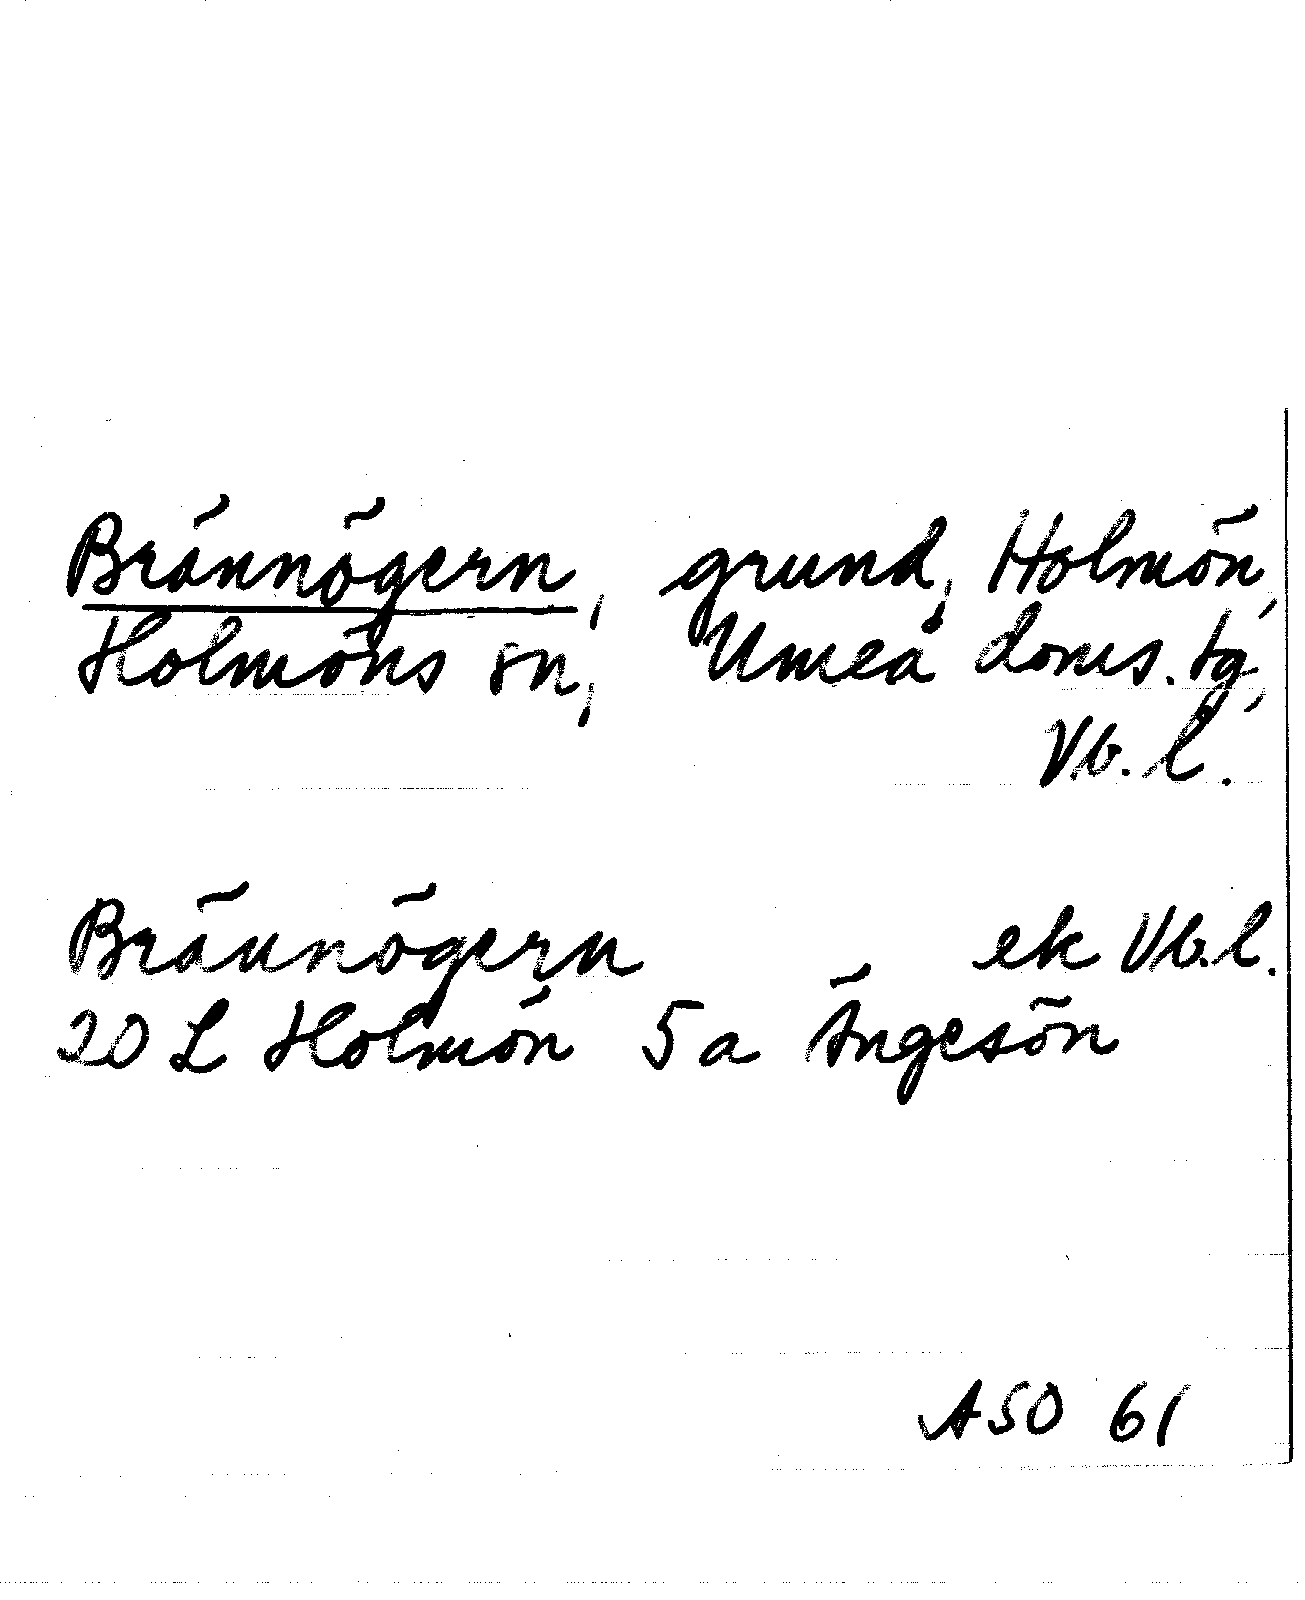 Brännögern, grund, Holmön,
Holmöns sn, Umeå doms. tg,
Vb. l.
Brännögern ek Vb. l.
20 L Holmön 5 a Ängesön
ASO 61